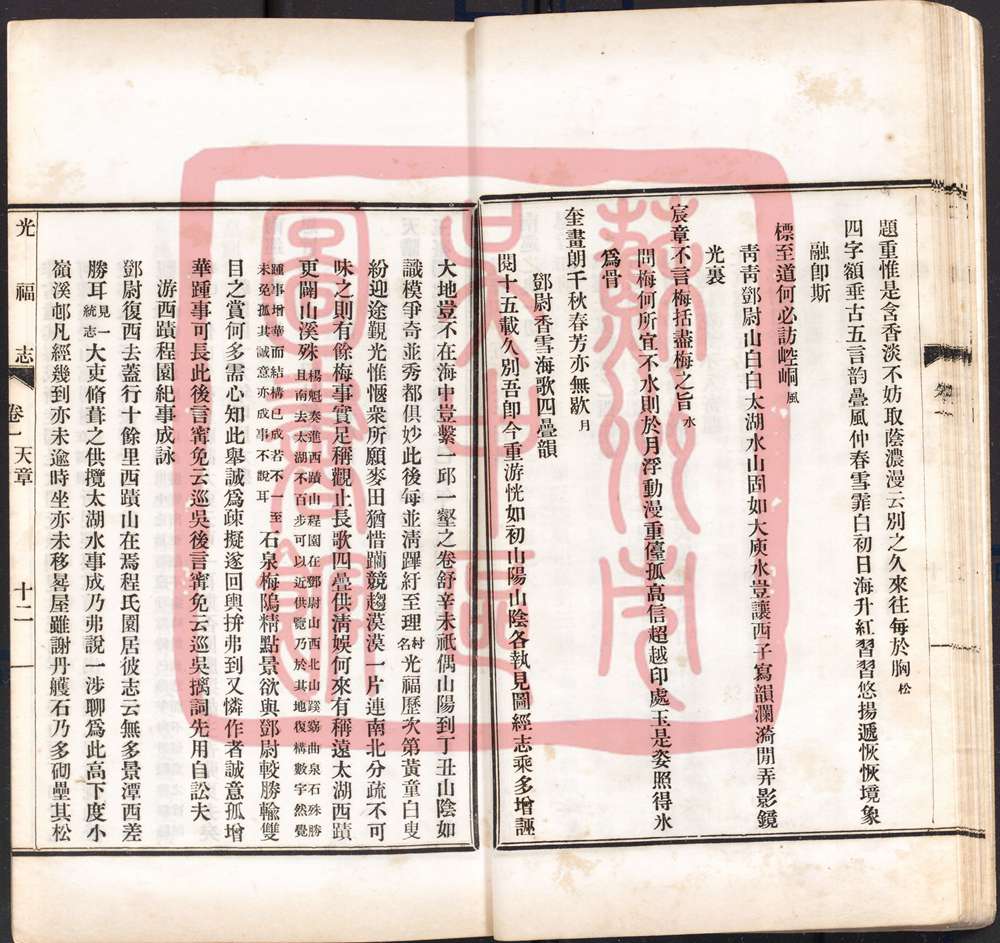 題重惟是含香淡不妨取陰濃漫云別之久來往每於胸松
四字額垂古五言韵疊風仲春雪霏白初日海升紅習習悠揚遞恢恢境象
融卽斯
標至道何必訪崆峒風
靑靑鄧尉山白白太湖水山固如大庾水豈讓西子寫韻瀾漪閒弄影鏡
光裏
宸章不言梅括盡梅之旨水
問梅何所宜不水則於月浮動漫重僮孤高信超越印處玉是姿照得氷
爲骨
奎畫朗千秋春芳亦無歇月
鄧尉香雪海歌四疊韻
閱十五載久別吾卽今重游恍如初山陽山陰各執見圖經志乘多增誣
大地豈不在海中豈繫一邱一壑之卷舒辛未祇偶山陽到丁丑山陰如
識模爭奇並秀都俱妙此後每並淸蹕紆至理村名光福歷次第黃童白叟
紛迎途覲光惟愜衆所願麥田猶惜躪競趨漠漠一片連南北分疏不可
味之則有餘梅事實足稱觀止長歌四疊供淸娛何來有稱遠太湖西蹟
更闢山溪殊楊魁奏進西蹟山程園在鄧尉山西北山蹊窈曲泉石殊勝
且南去太湖不百步可以近供覽乃於其地復構數宇然覺
踵事增華而結構已成若不一至
未免孤其誠意亦成事不說耳石泉梅隖精點景欲與鄧尉較勝輸雙
目之賞何多需心知此舉誠爲疎擬遂回輿拚弗到又憐作者誠意孤增
華踵事可長此後言甯免云巡吳後言甯免云巡吳摛詞先用自訟夫
游西蹟程園紀事成詠
鄧尉復西去蓋行十餘里西蹟山在焉程氏園居彼志云無多景潭西差
勝耳見一統志大吏脩葺之供攬太湖水事成乃弗說一涉聊爲此高下度小
嶺溪邨凡經幾到亦未逾時坐亦未移晷屋雖謝丹艧石乃多砌壘其松
光福志
卷一天章
十二